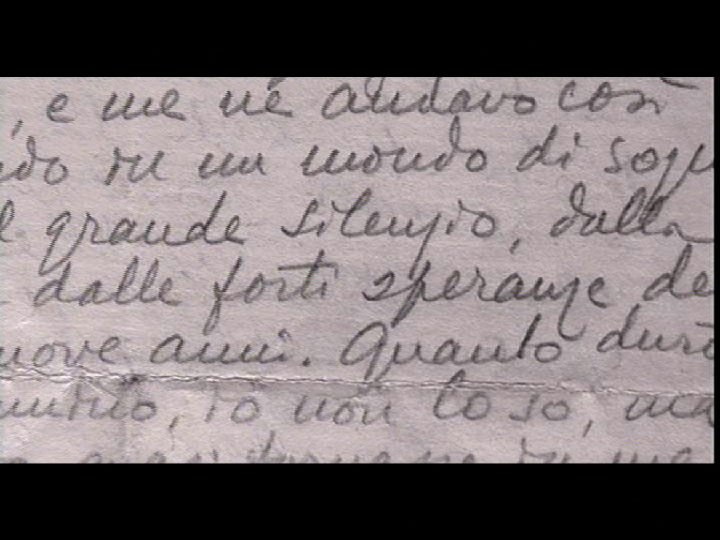 , e me ne andavo così
ndo in un mondo di sogn
l grande silenzio, dalla
dalle forti speranze de
nove anni. Quanto durò
mmino, io non lo so, ma